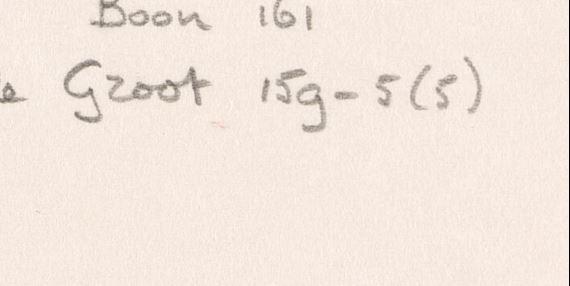 Boon 161
e Groot 15g-5(5)